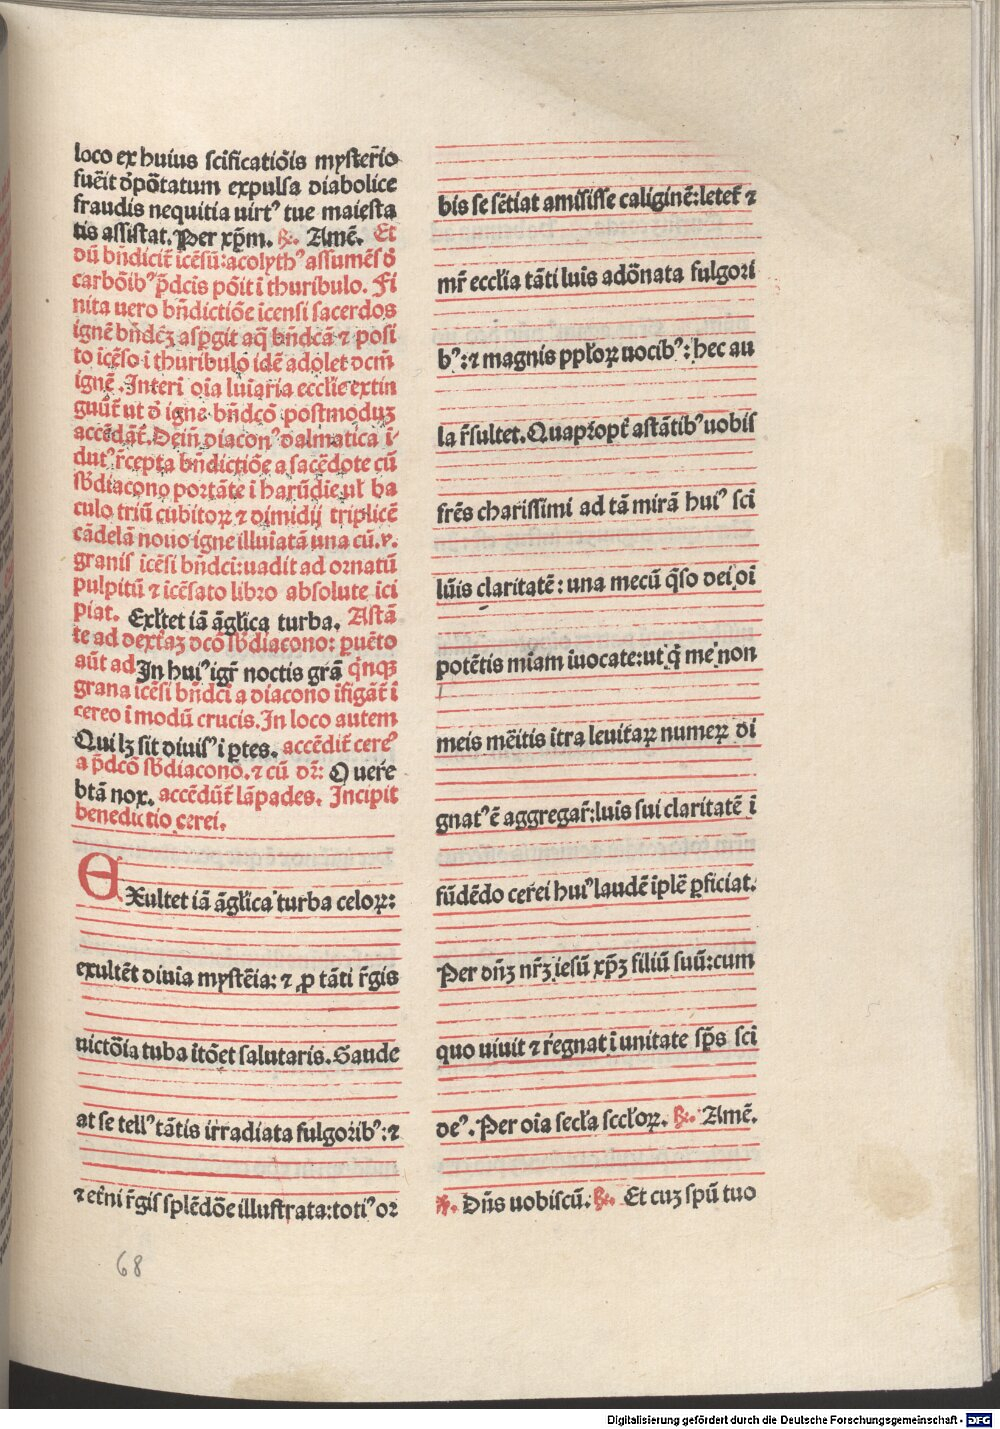 loco ex huius scificatiõis mysteřio
fuẽit ð põtatum expulsa diabolice
fraudis nequitia uirtꝰ tue maiesta
tis assistat. Per xp̃m. ℟. Amẽ. Et
dũ bñdicit̃ icẽsũ: acolythꝰ assumẽs ð
carbõibꝰ p̃dcis põit i thuribulo. Fi
nita uero bñdictiõe icensi sacerdos
ignẽ bñdcẓ aspgit aq̃ bñdcã ⁊ posi
to icẽso i thuribulo idẽ adolet dcm̃
ignẽ. Interi oia luiaria ecclie extin
guũt̃ ut ð igne bñdcõ postmoduʒ
accẽdãt̃. Deiñ diaconꝰ dalmatica i
dutꝰ r̃cepta bñdictiõe a sacẽdote cũ
sb̃diacono portãte i harũdie ul ba
culo triũ cubitoꝝ ⁊ dimidij triplicẽ
cãdelã nouo igne illuiatã una cũ .v.
granis icẽsi bñdci: uadit ad ornatũ
pulpitũ ⁊ icẽsato libro absolute ici
piat. Exl̃tet iã ãglica turba. Astã
te ad dext̃aʒ dcõ sb̃diacono: puẽto
aũt ad In huiꝰ igr̃ noctis grã qnqʒ
grana icẽsi bñdci a diacono ifigãt̃ i
cereo i modũ crucis. In loco autem
Qui lʒ sit diuisꝰ i ꝑtes. accẽdit̃ cereꝰ
a p̃dcõ sb̃diacono. ⁊ cũ dr̃: O uere
btã nox. accẽdũt̃ lãpades. Incipit
benedictio cerei.
EXultet iã ãglica turba celoꝝ:
exultẽt diuia mystẽia: ⁊ ꝓ tãti r̃gis
uictõia tuba itõet salutaris. Gaude
at se tellꝰ tãtis irradiata fulgoribꝰ: ⁊
⁊ et̃ni r̃gis splẽdõe illustrata: totiꝰ or
bis se sẽtiat amisisse caliginẽ: letet̃ ⁊
mr̃ ecclia tãti luis adõnata fulgori
bꝰ: ⁊ magnis pploꝝ uocibꝰ: hec au
la r̃sultet. Quapropt̃ astãtibꝰ uobis
frẽs charissimi ad tã mirã huiꝰ sci
lũis claritatẽ: una mecũ q̃so dei oi
potẽtis miam iuocate: ut q̃ me non
meis mẽitis itra leuitaꝝ numeꝝ di
gnatꝰ ẽ aggregar̃: luis sui claritatẽ i
fũdẽdo cerei huiꝰ laudẽ iplẽ ꝑficiat.
Per dñʒ nr̃ʒ iesũ xp̃ʒ filiũ suũ: cum
quo uiuit ⁊ r̃egnat i unitate sp̃s sci
deꝰ. Per oia secl̃a seccl̃oꝝ. ℟. Amẽ.
℣. Dñs uobiscũ. ℟. Et cuʒ spũ tuo
68
Digitalisierung gefördert durch die Deutsche Forschungsgemeinschaft - DFG